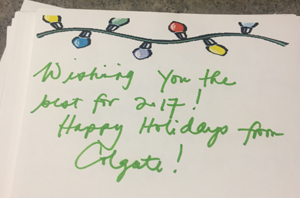 Wishing You the
best for 2017!
Happy Holidays from
Colgate!